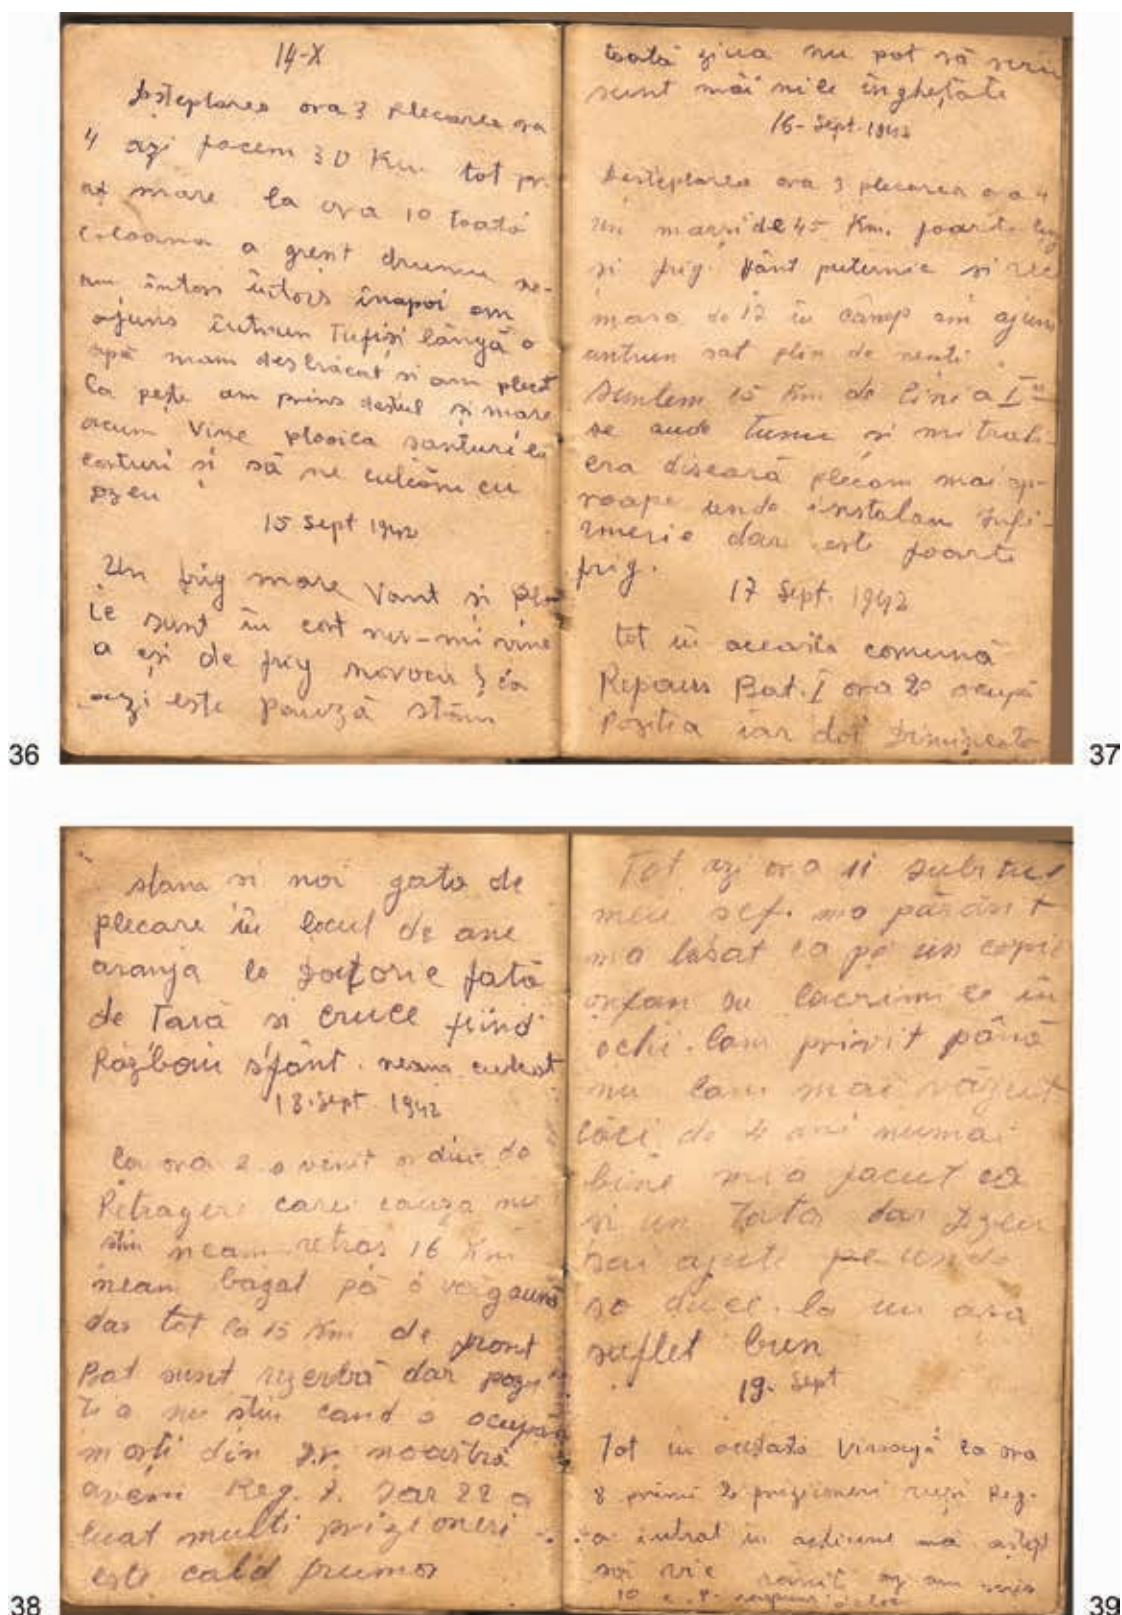 14-X
ora 3 plecarea ora
4 azi facem 30 Km. tot
mare la ora 10 toată
coloana a greșit drumu ne-
am întors întors înapoi am
ajuns întrun Tufiși lângă o
apă mam desbrăcat si am plecat
la pește am prins destul și mare
acum vine ploaica
corturi și să ne culcăm cu
15 sept 1942
Un frig mare Vant si plo-
ie sunt în cort nu-mi vine
a eși de frig norocu că
azi este pauză stăm
36
toată ziua nu pot să scriu
sunt mâinile înghețate
16-Sept-1942
Desteptarea ora 3 plecarea ora 4
un marș de 45 Km. foarte lung
si frig. vânt puternic si rece
masa de 12 în câmp am ajuns
antrun sat plin de nemți.
Suntem 15 Km de linea I
se aude tunu si mitrali-
era diseară plecam mai ap-
roape unde instalam Infi-
rmerie dar este foarte
frig.
17 Sept. 1942
tot în aceasta comună
Repaus Bat. I ora 20 ocupă
Pozitia iar doi Dimineata
37
stana si noi gata de
plecare în locul de ane
aranja la Datorie fată
de Tară si cruce fiind
Război sfânt. neam culcat
18.Sept 1942
La ora 2 a venit ordin de
Retragere care cauza nu
stiu neam retras 16 Km
neam băgat pă o văgaună
dar tot la 15 Km de front
Bat sunt rezervă dar pozi
ti a nu stiu cand o ocupăm
morți din noastră
avem Reg. 7. Dar 22 a
luat multi prizioneri
este cald frumos
38
Tot azi ora 11
meu sef. ma părăsit
ma lăsat ca pe un copil
orfan cu lacrimile în
ochi. lam privit până
nu lam mai văzut
căci de 4 ani numai
bine mi a facut ca
si un Tata dar Dzeu
sai ajute pe unde
so duce. la un asa
suflet bun
19. Sept
Tot în aceasta la ora
8 primi 20 prizioneri ruși Reg.
a intrat în actiune mă astept
să vie rănit az am scris
10 c. p.
39